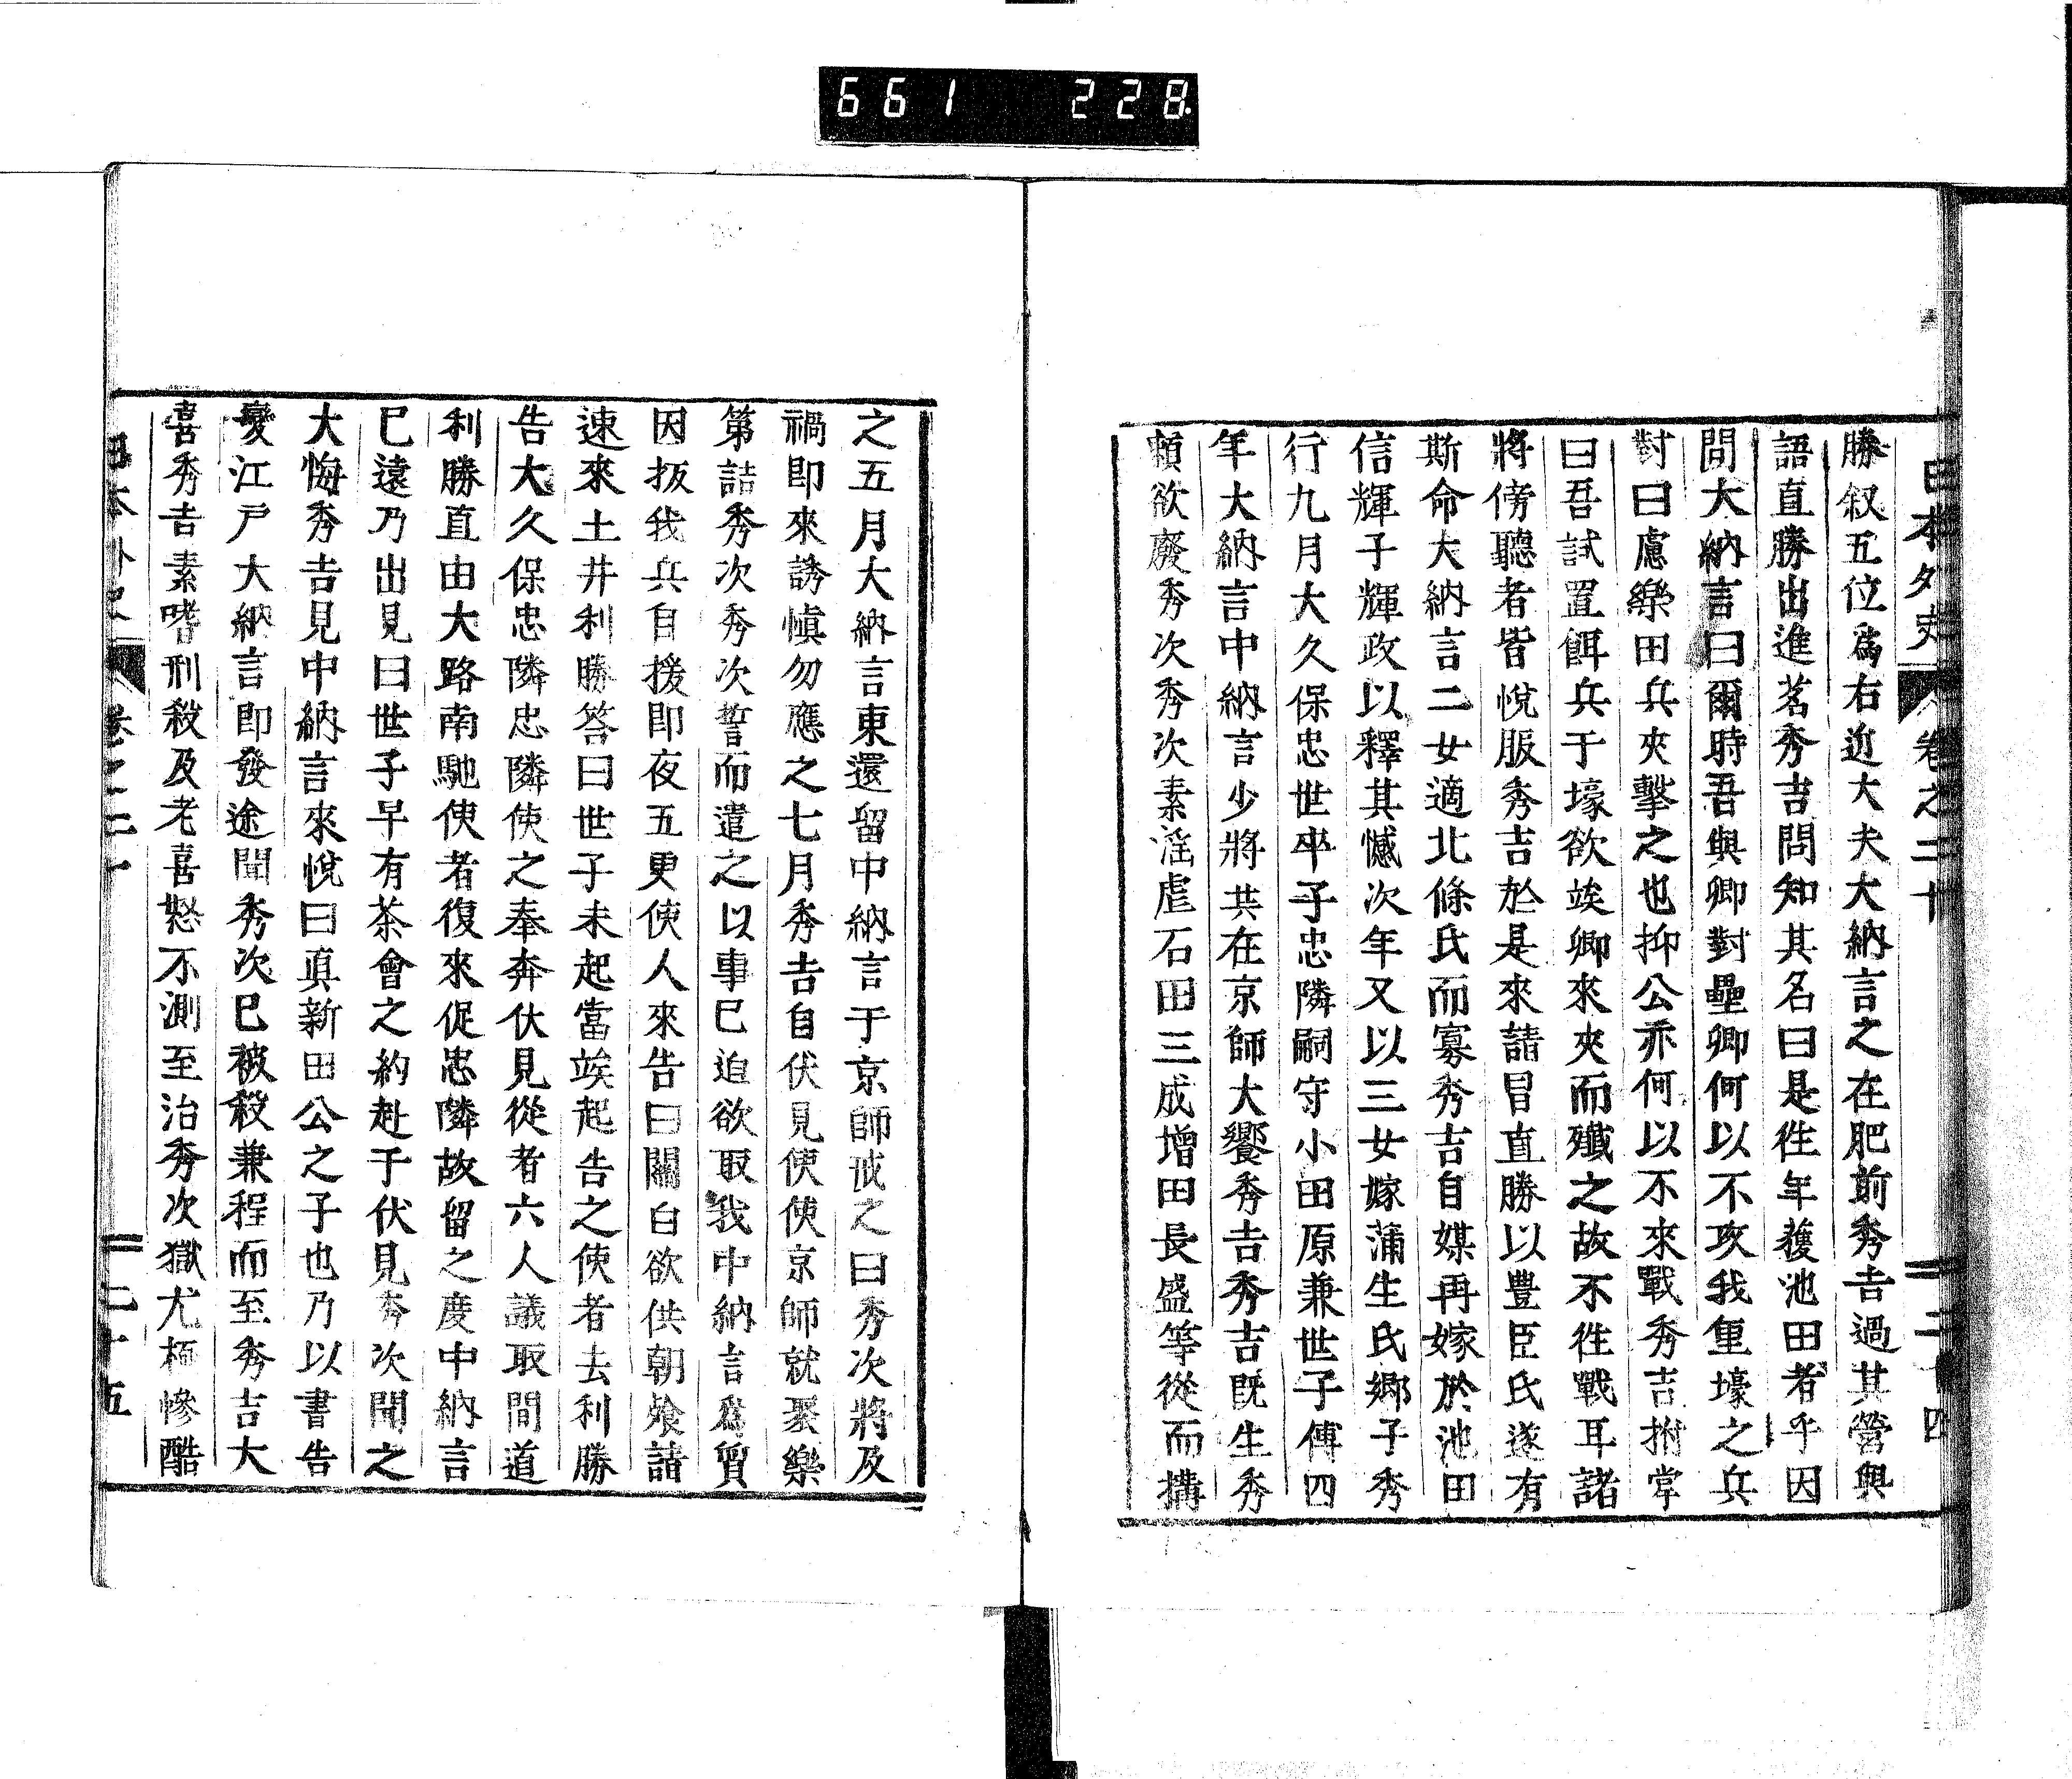 661 228
日本外史 卷之二十 二十四
勝叙五位爲右近大夫大納言之在肥前秀吉過其營與
語直勝出進茗秀吉問知其名曰是徃年獲池田者乎因
問大納言曰爾時吾與卿對壘卿何以不攻我重壕之兵
對曰慮樂田兵夾擊之也抑公亦何以不來戰秀吉拊掌
曰吾試置餌兵于壕欲竢卿來夾而殲之故不徃戰耳諸
將傍聽者皆悅服秀吉於是來請冒直勝以豐臣氏遂有
斯命大納言二女適北條氏而寡秀吉自媒再嫁於池田
信輝子輝政以釋其憾次年又以三女嫁蒲生氏鄉子秀
行九月大久保忠世卒子忠隣嗣守小田原兼世子傅四
年大納言中納言少將共在京師大饗秀吉秀吉既生秀
賴欲廢秀次秀次素淫虐石田三成增田長盛等從而搆
之五月大納言東還留中納言于京師戒之曰秀次將及
禍即來誘愼勿應之七月秀吉自伏見使使京師就聚樂
第詰秀次秀次誓而遣之以事已迫欲取我中納言爲質
因扳我兵自援即夜五更使人來告曰關白欲供朝飧請
速來土井利勝答曰世子未起當竢起告之使者去利勝
告大久保忠隣忠隣使之奉奔伏見從者六人議取間道
利勝直由大路南馳使者復來促忠隣故留之度中納言
已遠乃出見曰世子早有茶會之約赴于伏見秀次聞之
大悔秀吉見中納言來悅曰眞新田公之子也乃以書告
變江戸大納言即發途聞秀次已被殺兼程而至秀吉大
喜秀吉素嗜刑殺及老喜怒不測至治秀次獄尤極慘酷
日本外史 卷之二十 二十五